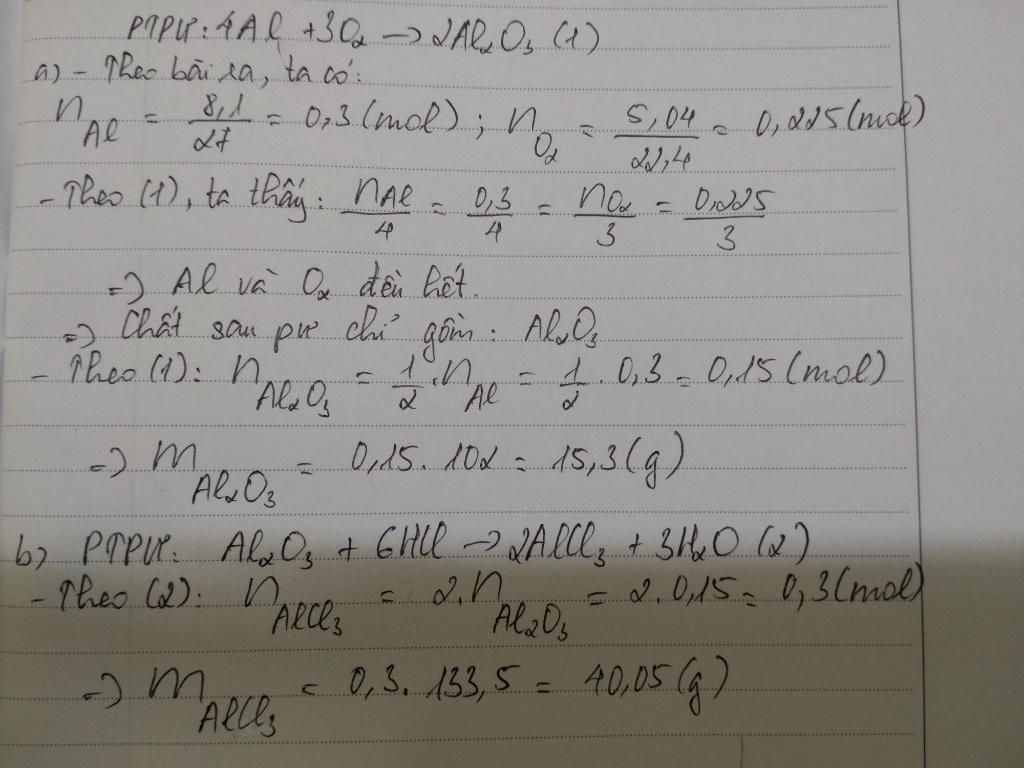 PTPƯ: 4Al + 3O₂ → 2Al₂O₃ (1)
a) - Theo bài ra, ta có:
n_Al = 8,1/27 = 0,3 (mol) ; n_O₂ = 5,04/22,4 = 0,225 (mol)
- Theo (1), ta thấy: n_Al/4 = 0,3/4 = n_O₂/3 = 0,225/3
=> Al và O₂ đều hết.
=> Chất sau pư chỉ gồm: Al₂O₃
- Theo (1): n_Al₂O₃ = 1/2 . n_Al = 1/2 . 0,3 = 0,15 (mol)
=> m_Al₂O₃ = 0,15 . 102 = 15,3 (g)
b) PTPƯ: Al₂O₃ + 6HCl → 2AlCl₃ + 3H₂O (2)
- Theo (2): n_AlCl₃ = 2 . n_Al₂O₃ = 2 . 0,15 = 0,3 (mol)
=> m_AlCl₃ = 0,3 . 133,5 = 40,05 (g)